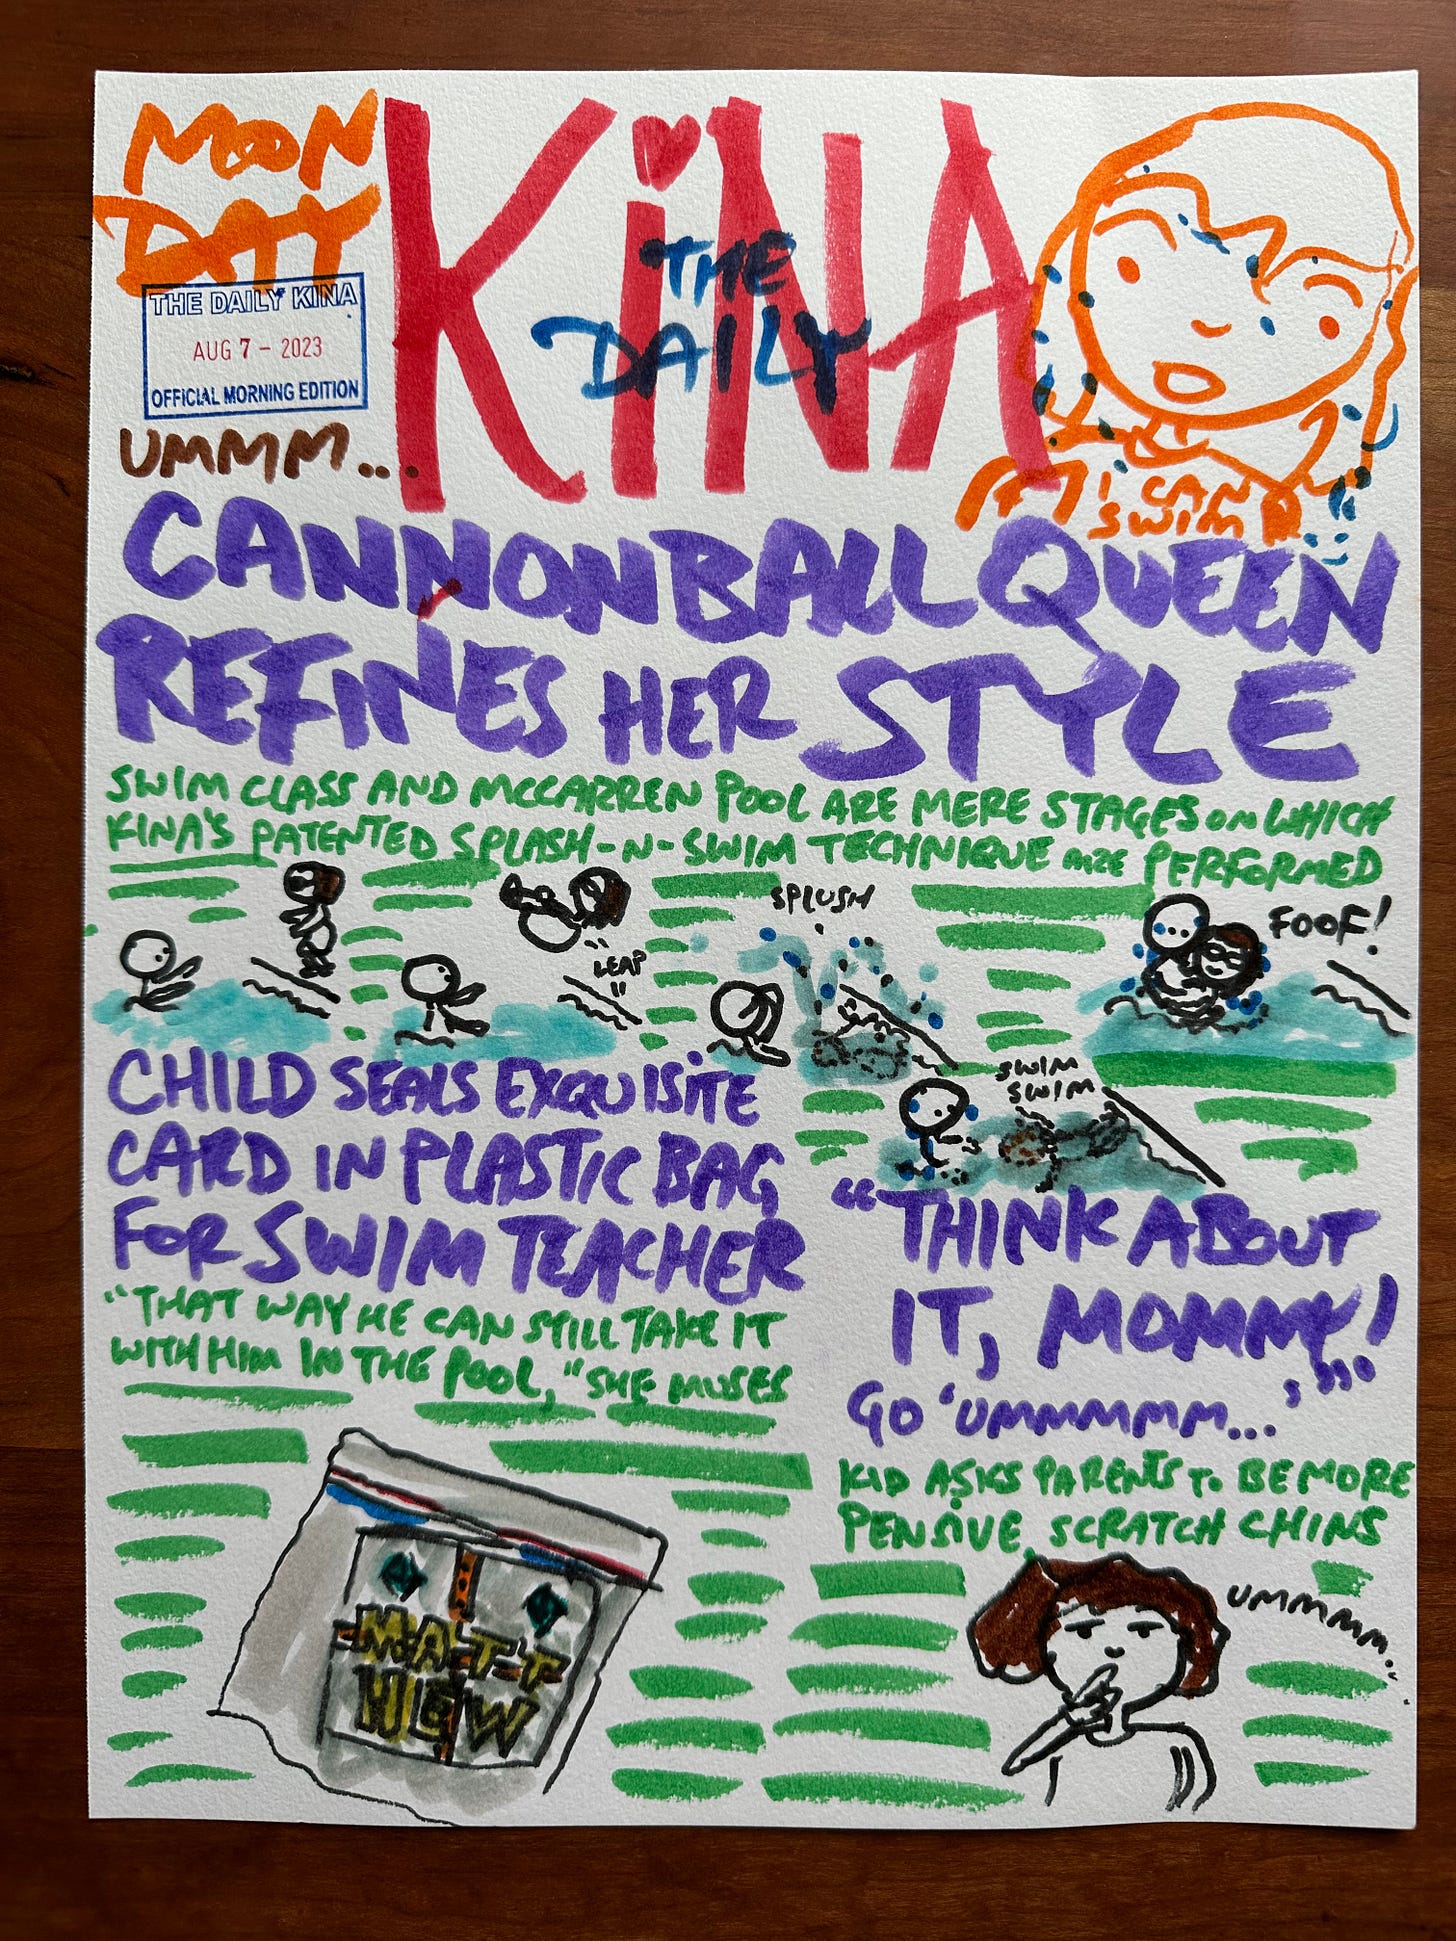 MON
DAY
THE DAILY KINA
AUG 7 - 2023
OFFICIAL MORNING EDITION
UMMM...
KiNA
THE
DAILY
I CAN
SWIM
CANNONBALL QUEEN
REFINES HER STYLE
SWIM CLASS AND MCCARREN POOL ARE MERE STAGES ON WHICH
KINA'S PATENTED SPLASH-N-SWIM TECHNIQUE ARE PERFORMED
"LEAP"
SPLUSH
SWIM
SWIM
FOOF!
CHILD SEALS EXQUISITE
CARD IN PLASTIC BAG
FOR SWIM TEACHER
"THAT WAY HE CAN STILL TAKE IT
WITH HIM IN THE POOL," SHE MUSES
MATT
HEW
"THINK ABOUT
IT, MOMMY!
GO 'UMMMMMM...'"
KID ASKS PARENTS TO BE MORE
PENSIVE, SCRATCH CHINS
UMMMMM...